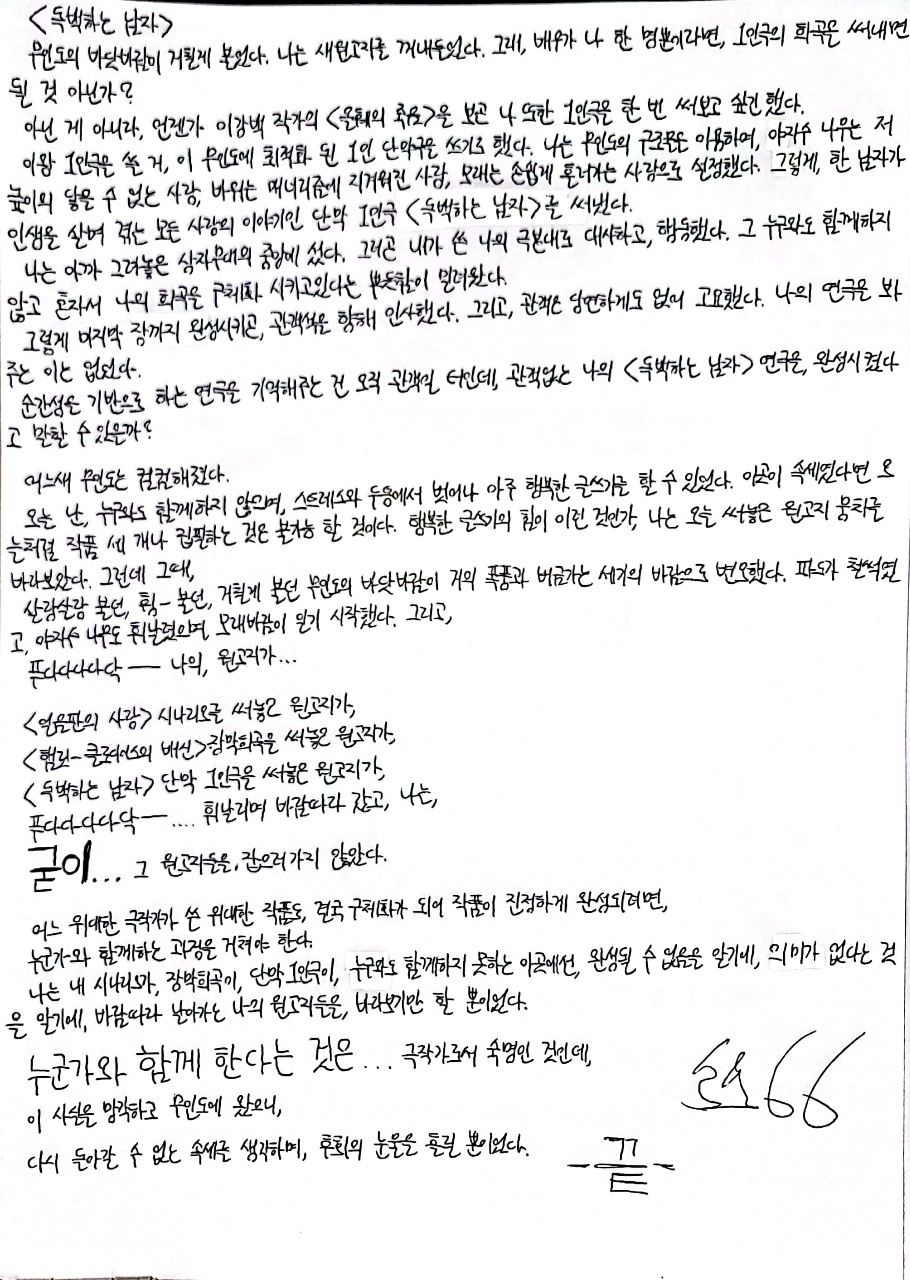 <독백하는 남자>
무인도의 바닷바람이 거칠게 불었다. 나는 새원고지를 꺼내들었다. 그래, 배우가 나 한 명뿐이라면, 1인극의 희곡을 써내면
될 것 아닌가?
아닌 게 아니라, 언젠가 이강백 작가의 <을 보곤 나 또한 1인극을 한 번 써보고 싶긴 했다.
이왕 1인극을 쓸 거, 이 무인도에 최적화 된 1인 단막극을 쓰기로 했다. 나는 무인도의 구조물을 이용하여, 야자수 나무는 저
높이의 닿을 수 없는 사랑, 바위는 매너리즘에 지겨워진 사랑, 모래는 손쉽게 흘러가는 사랑으로 설정했다. 그렇게, 한 남자가
인생을 살며 겪는 모든 사랑의 이야기인 단막 1인극 <독백하는 남자>를 써냈다.
나는 아까 그려놓은 상자무대의 중앙에 섰다. 그러곤 내가 쓴 나의 극본대로 대사하고, 행동했다. 그 누구와도 함께하지
않고 혼자서 나의 희곡을 구체화 시키고있다는 뿌듯함이 밀려왔다.
그렇게 마지막 장까지 완성시키곤, 관객석을 향해 인사했다. 그리고, 관객은 당연하게도 없어 고요했다. 나의 연극을 봐
주는 이는 없었다.
순간성을 기반으로 하는 연극을 기억해주는 건 오직 관객일 터인데, 관객없는 나의 <독백하는 남자> 연극을, 완성시켰다
고 말할 수 있을까?
어느새 무인도는 컴컴해졌다.
오늘 난, 누구와도 함께하지 않으며, 스트레스와 두통에서 벗어나 아주 행복한 글쓰기를 할 수 있었다. 이곳이 속세였다면 오
늘처럼 작품 세 개나 집필하는 것은 불가능 할 것이다. 행복한 글쓰기의 힘이 이런 것인가, 나는 오늘 써놓은 원고지 뭉치를
바라보았다. 그런데 그때,
살랑살랑 불던, 휭- 불던, 거칠게 불던 무인도의 바닷바람이 거의 폭풍과 버금가는 세기의 바람으로 변모했다. 파도가 철썩였
고, 야자수 나무도 휘날렸으며, 모래바람이 일기 시작했다. 그리고,
푸다다다다닥 ── 나의, 원고지가...
<얼음판의 사랑> 시나리오를 써놓은 원고지가,
<햄릿-클로디어스의 배신> 장막희곡을 써놓은 원고지가,
<독백하는 남자> 단막 1인극을 써놓은 원고지가,
푸다다다다닥─.... 휘날리며 바람따라 갔고, 나는,
굳이... 그 원고지들을, 잡으러가지 않았다.
어느 위대한 극작가가 쓴 위대한 작품도, 결국 구체화가 되어 작품이 진정하게 완성되려면,
누군가와 함께하는 과정을 거쳐야 한다.
나는 내 시나리오가, 장막희곡이, 단막 1인극이, 누구와도 함께하지 못하는 이곳에선, 완성될 수 없음을 알기에, 의미가 없다는 것
을 알기에, 바람따라 날아가는 나의 원고지들을, 바라보기만 할 뿐이었다.
누군가와 함께 한다는 것은... 극작가로서 숙명인 것인데,
이 사실을 망각하고 무인도에 왔으니,
다시 돌아갈 수 없는 속세를 생각하며, 후회의 눈물을 흘릴 뿐이었다.
66
-끝-